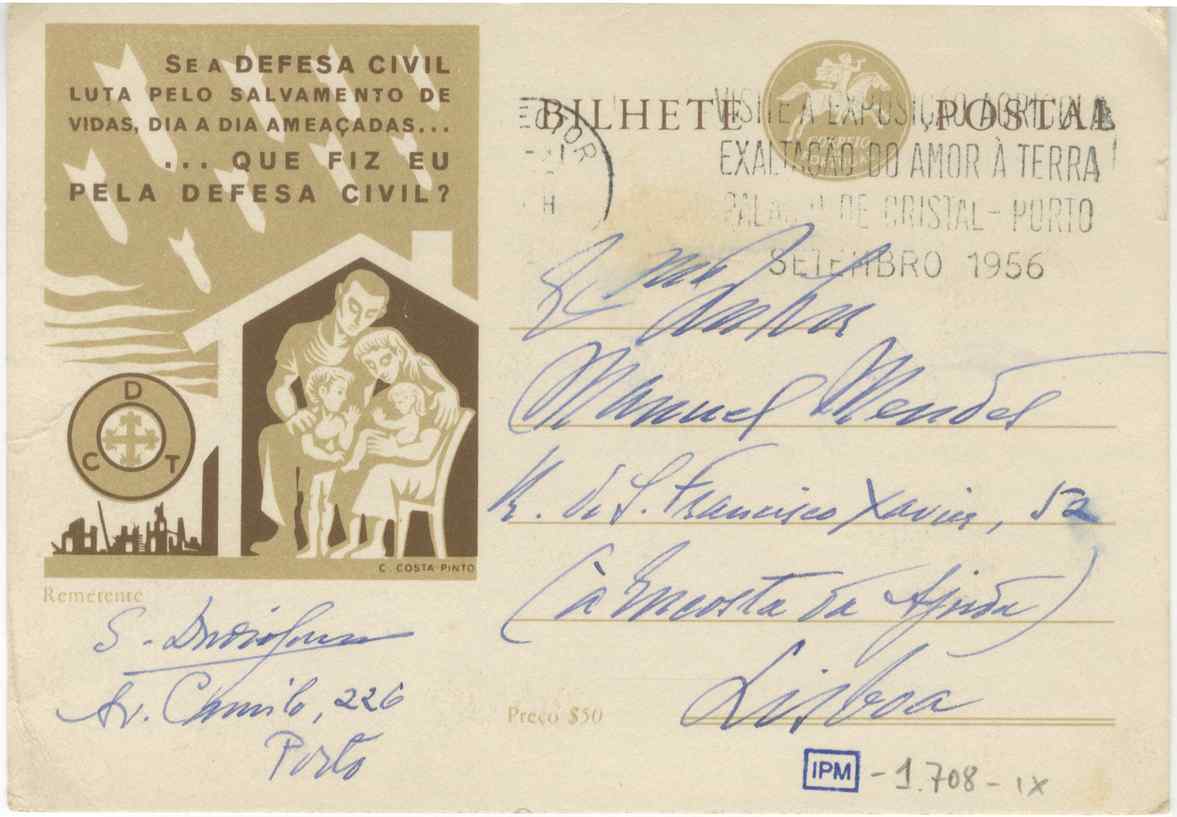 SE A DEFESA CIVIL
LUTA PELO SALVAMENTO DE
VIDAS, DIA A DIA AMEAÇADAS...
... QUE FIZ EU
PELA DEFESA CIVIL?
D
C T
C. COSTA PINTO
BILHETE POSTAL
CORREIO
VISITE A EXPOSIÇÃO AGRICOLA
EXALTAÇÃO DO AMOR À TERRA
PALACIO DE CRISTAL - PORTO
SETEMBRO 1956
Manuel Mendes
R. de S. Francisco Xavier, 52
(à Encosta da Ajuda)
Lisboa
Remetente
S.
Av. Camilo, 226
Porto
Preço $50
IPM - 1.708 - IX